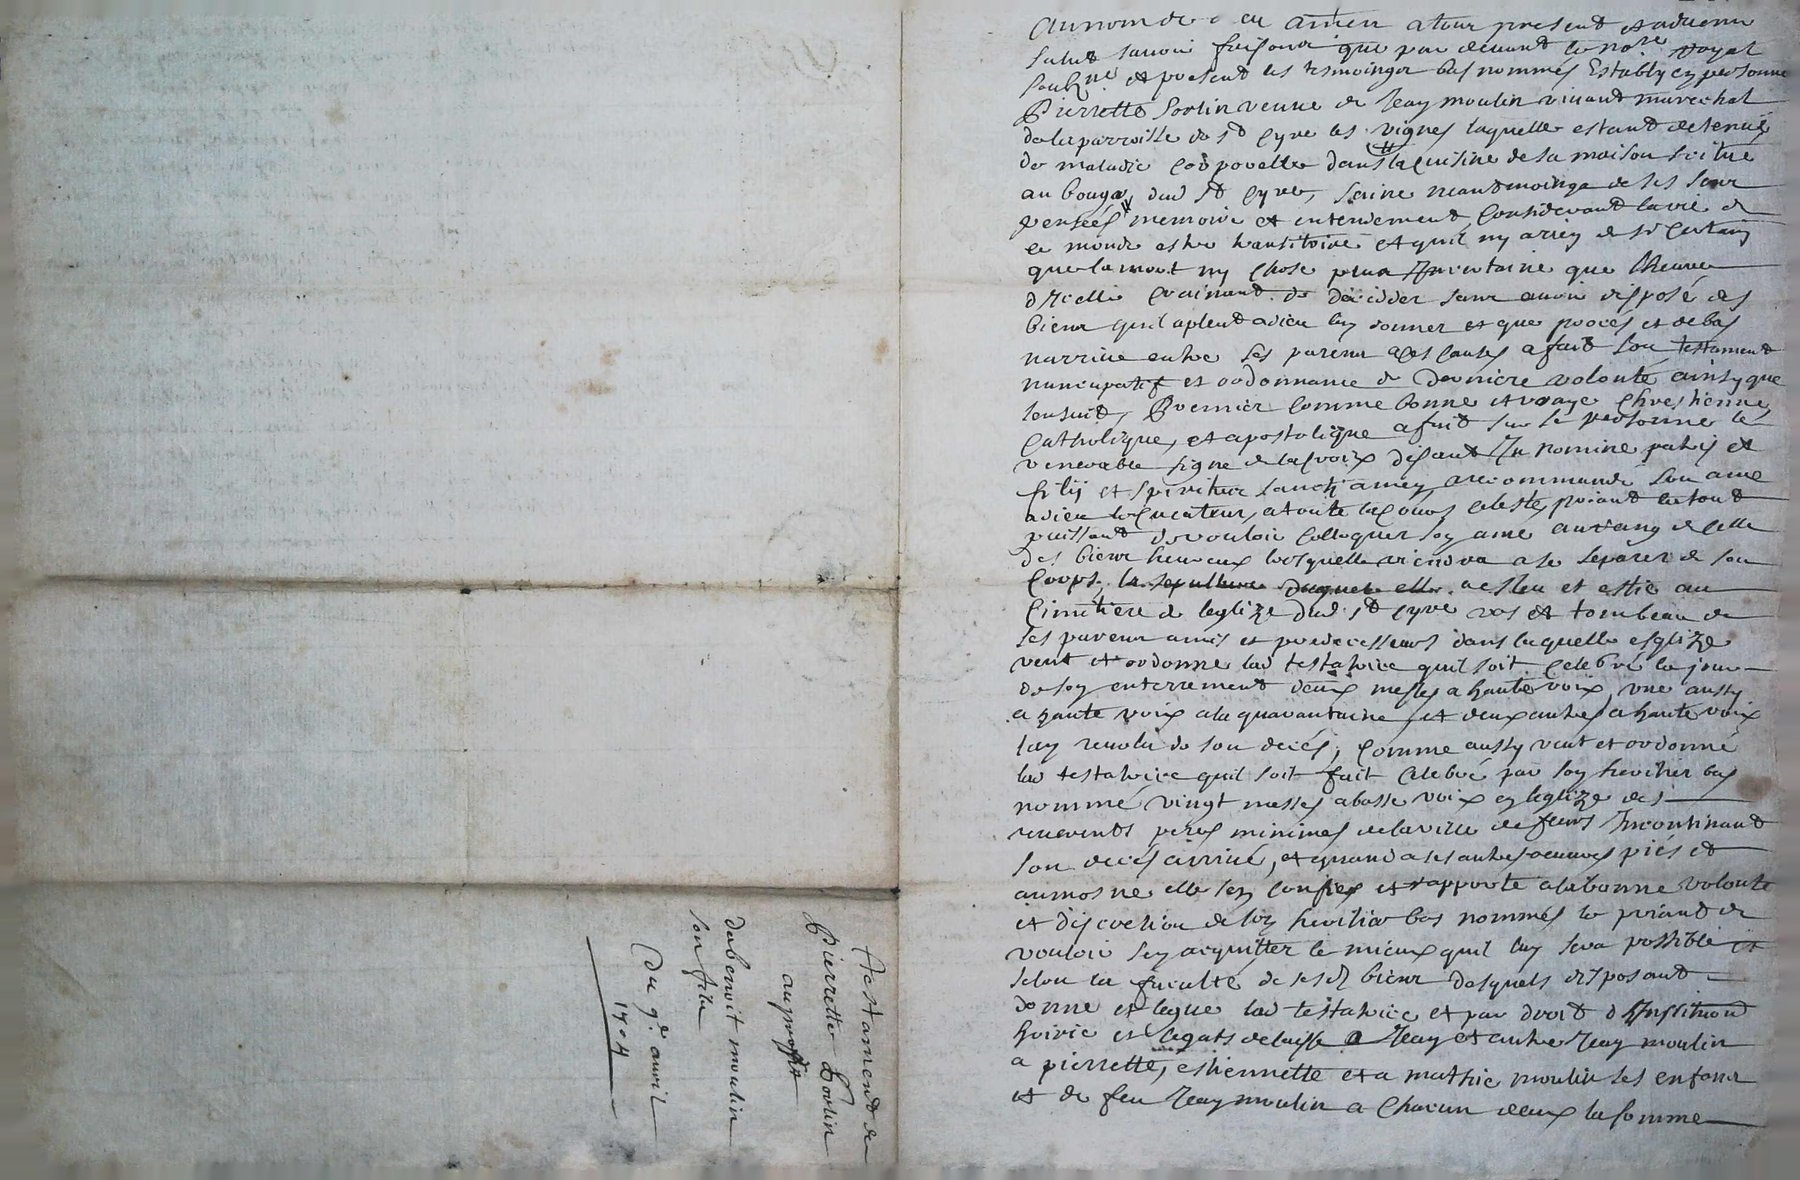 Au nom de dieu amen a tous presents et advenir
salut scavoir faisons que par devant le no.re royal
soubz.ne et presents les tesmoings bas nommés Establye en personne
Pierrette Sorlin veuve de Jean moulin vivant marechal
de la parroisse de S.t Cyre les vignes laquelle estant detenue
de maladie corporelle dans la cuisine de sa maison scitue
au bourg dud S.t Cyre, saine neantmoings de ses sens
pensées memoire et entendement considerant la vie de
ce monde estre transitoire et quil ny a rien de si certain
que la mort ny chose plus Incertaine que lheure
dIcelle craignant de deceder sans avoir disposé des
biens quil a pleut a dieu luy donner et que procès et debas
narrive entre ses parens a ces causes a fait son testament
nuncupatif et ordonnance de derniere volonté ainsy que
sensuit, Premier comme bonne et vraye chrestienne,
catholique, et apostolique a fait sur sa personne le
venerable signe de la croix disant In nomine patris et
filij et spiritus sancti amen, a recommandé son ame
a dieu le createur, a toute la cour celeste, priant le tout
puissant de vouloir colloquer son ame au rang de celle
des biens heureux lorsquelle viendra a se separer de son
corps, la sepulture duquel elle a esleu et eslie au
cimitiere de leglize dud S.t Cyre vas et tombeau de
ses parens amis et predecesseurs dans laquelle esglize
veut et ordonne lad testatrice quil soit celebré le jour
de son enterrement deux messes a haute voix, une aussy
a haute voix a la quarantaine, et deux autres a haute voix
lan revolu de son decés, comme aussy veut et ordonne
lad testatrice quil soit fait celebré par son heritier bas
nommé vingt messes a basse voix en leglize des
reverends peres minimes de la ville de feurs Incontinant
son decés arrivé, et quand a ses autres oeuvres piés et
aumosne elle sen confie et rapporte a la bonne volonté
et discretion de son heritier bas nommés le priant de
vouloir sen acquitter le mieux quil luy sera possible et
selon la faculté de sesd biens desquels disposant
donne et legue lad testatrice et par droit dInstitution
hoirie et legats delaisse a Jean et autre Jean moulin
a pierrette, estiennette et a mathie moulin ses enfans
et de feu Jean moulin a chacun deux la somme
Testament de
Pierrette Sorlin
au proffit
de benoit moulin
son filz
Du 9.e avril
1704